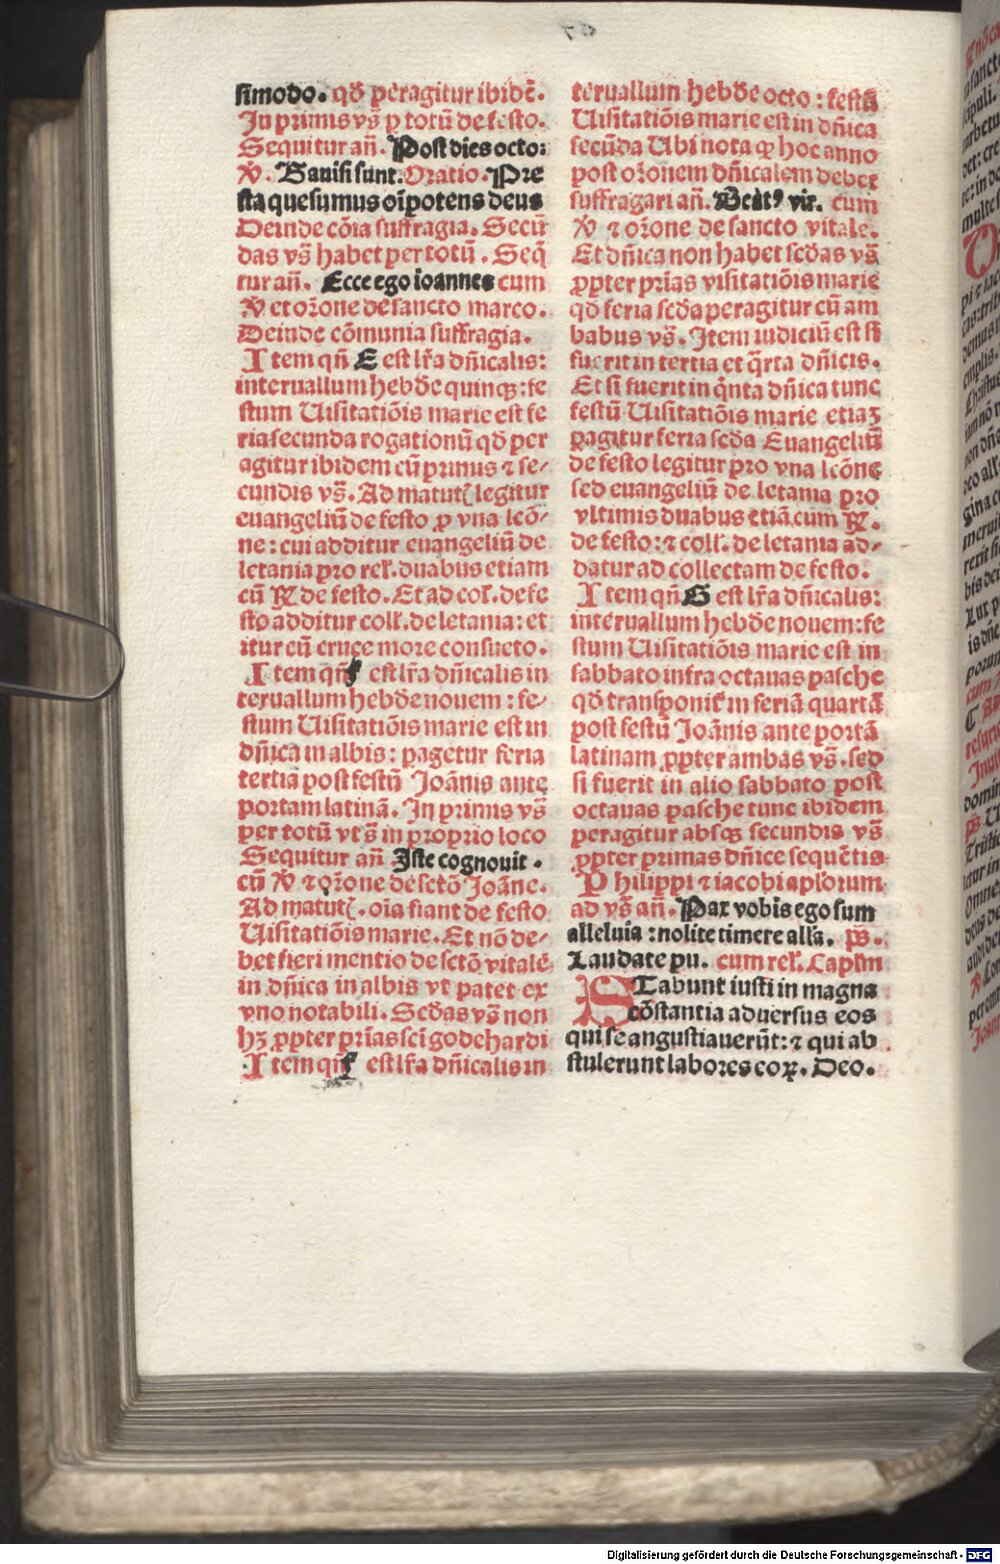 simodo. qđ ꝑeragitur ibidē.
In primis vs̄ ꝑ totū de festo.
Sequitur an̄. Post dies octo:
℣. Gauisi sunt. Oratio. Pre
sta quesumus oīpotens deus
Deinde cōīa suffragia. Secū
das vs̄ habet per totū. Seq̄
tur an̄. Ecce ego ioannes cum
℣ et orōne de sancto marco.
Deinde cōmunia suffragia.
Item qn̄ E est lr̄a dn̄icalis:
interuallum hebđe quinqꝫ: fe
stum Uisitatiōis marie est fe
ria secunda rogationū qđ per
agitur ibidem cū primus ⁊ se-
cundis vs̄. Ad matut̄ legitur
euangeliū de festo ꝓ vna lcō-
ne: cui additur euangeliū de
letania pro rel̄. duabus etiam
cū ℟ de festo. Et ad col̄. de fe
sto additur coll̄. de letania: et
itur cū cruce more consueto.
Item qn̄ f est lr̄a dn̄icalis in
teruallum hebđe nouem: fe-
stum Uisitatiōis marie est in
dn̄ica in albis: ꝑagetur feria
tertia post festū Joānis ante
portam latinā. In primis vs̄
per totū vt s̄ in proprio loco
Sequitur an̄ Iste cognouit.
cū ℣ ⁊ orōne de sctō Joāne.
Ad matut̄. oīa fiant de festo
Uisitatiōis marie. Et nō de-
bet fieri mentio de sctō vitale
in dn̄ica in albis vt patet ex
vno notabili. Scđas vs̄ non
hꝫ ꝓpter prīas sci godehardi
Item qn̄ f est lr̄a dn̄icalis in
teruallum hebđe octo: festū
Uisitatiōis marie est in dn̄ica
secūda Ubi nota ꝙ hoc anno
post orōnem dn̄icalem debet
suffragari an̄. Beatꝰ vir. cum
℣ ⁊ orōne de sancto vitale.
Et dn̄ica non habet scđas vs̄
ꝓpter prīas visitatiōis marie
qđ feria scđa peragitur cū am
babus vs̄. Item iudiciū est si
fuerit in tertia et q̄rta dn̄icis.
Et si fuerit in q̄nta dn̄ica tunc
festū Uisitatiōis marie etiaꝫ
ꝑagitur feria scđa Euangeliū
de festo legitur pro vna lcōne
sed euangeliū de letania pro
vltimis duabus etiā cum ℟.
de festo: ⁊ coll̄. de letania ad-
datur ad collectam de festo.
Item qn̄ G est lr̄a dn̄icalis:
interuallum hebđe nouem: fe
stum Uisitatiōis marie est in
sabbato infra octauas pasche
qđ transponit̄ in feriā quartā
post festū Joānis ante portā
latinam ꝓpter ambas vs̄. sed
si fuerit in alio sabbato post
octauas pasche tunc ibidem
peragitur absqꝫ secundis vs̄
ꝓpter primas dn̄ice sequētis
Philippi ⁊ iacobi aplorum
ad vs̄ an̄. Pax vobis ego sum
alleluia: nolite timere alla. ps̄.
Laudate pu. cum rel̄. Caplm
STabunt iusti in magna
cōstantia aduersus eos
qui se angustiauerūt: ⁊ qui ab
stulerunt labores eoꝝ. Deo.
Digitalisierung gefördert durch die Deutsche Forschungsgemeinschaft - DFG